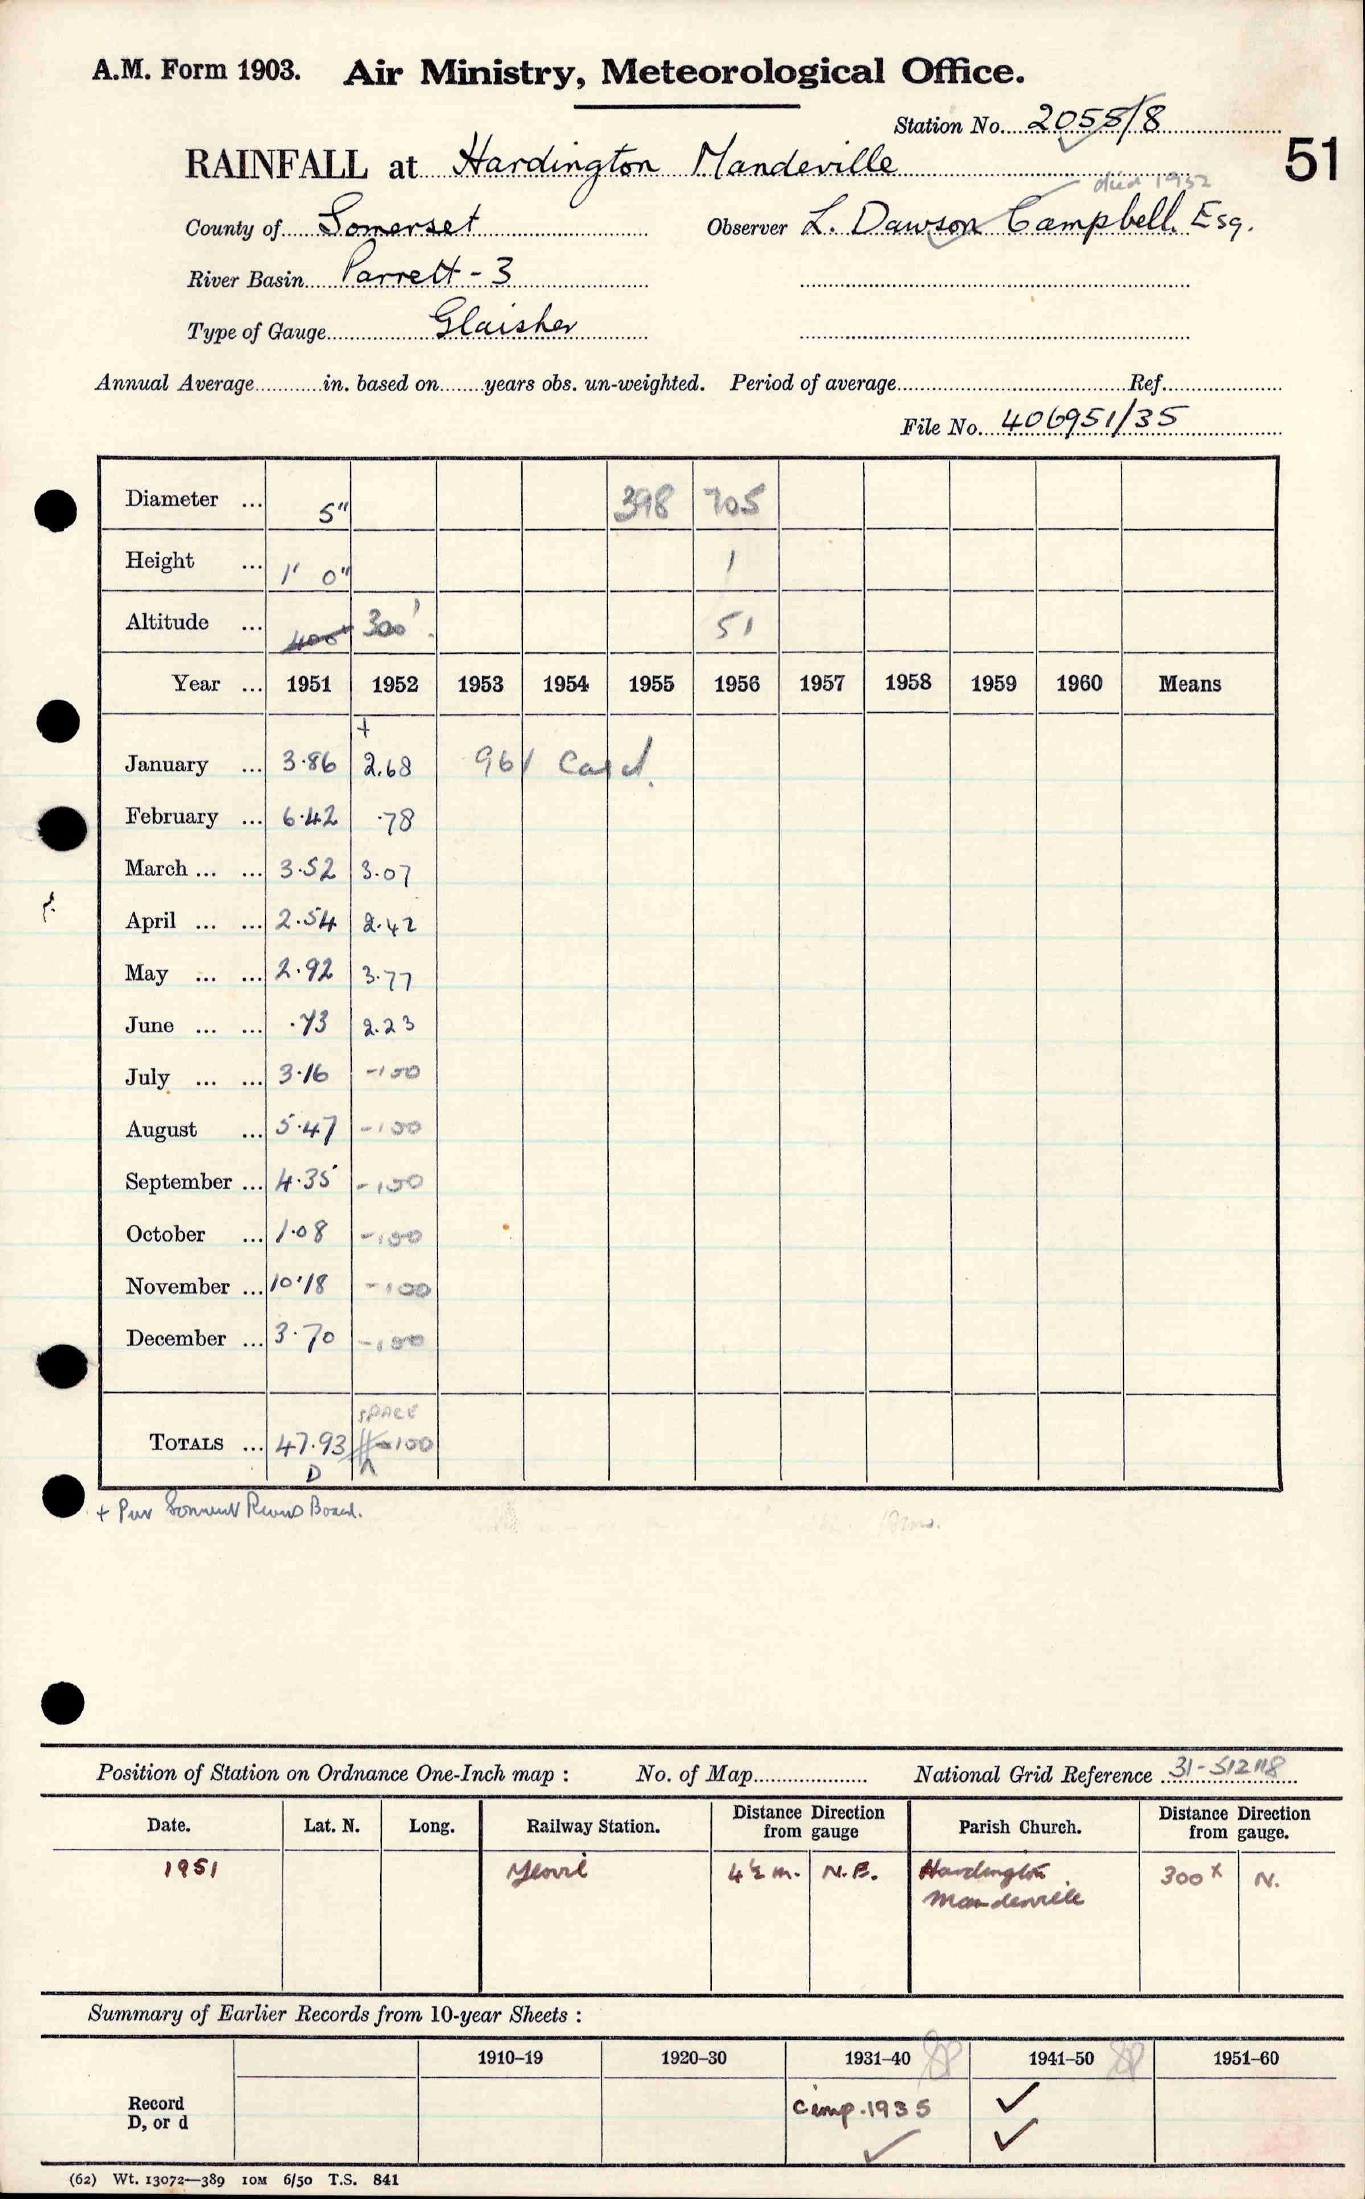 A.M. Form 1903. Air Ministry, Meteorological Office.
Station No. 2055/8
51
RAINFALL at Hardington Mandeville
died 1952
County of Somerset Observer L. Dawson Campbell. Esq.
River Basin Parrett - 3
Type of Gauge Glaisher
Annual Average in. based on years obs. un-weighted. Period of average Ref.
File No. 406951/35
Diameter ... 5" 398 705
Height ... 1' 0" 1
Altitude ... 400' 300' 51
Year ... 1951 1952 1953 1954 1955 1956 1957 1958 1959 1960 Means
+
January ... 3.86 2.68 961 Card.
February ... 6.42 .78
March ... ... 3.52 3.07
April ... ... 2.54 2.42
May ... ... 2.92 3.77
June ... ... .73 2.23
July ... ... 3.16 -100
August ... 5.47 -100
September ... 4.35 -100
October ... 1.08 -100
November ... 10.18 -100
December ... 3.70 -100
SPACE
TOTALS ... 47.93 -100
D
+ Per Somerset Rivers Board.
Position of Station on Ordnance One-Inch map : No. of Map National Grid Reference 31-512118
Date. Lat. N. Long. Railway Station. Distance Direction from gauge Parish Church. Distance Direction from gauge.
1951 Yeovil 4½ m. N.E. Hardington 300 x N.
Mandeville
Summary of Earlier Records from 10-year Sheets :
1910–19 1920–30 1931–40 1941–50 1951–60
Record
D, or d
Comp. 1935 ✓
✓ ✓
(62) Wt. 13072—389 10M 6/50 T.S. 841